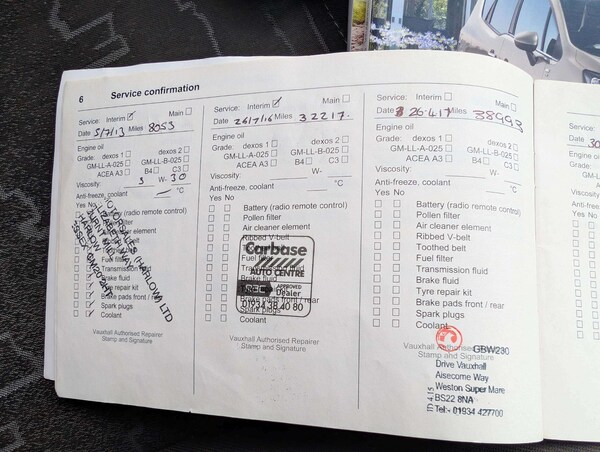 6 Service confirmation
Service: Interim ☑ Main ☐
Date 5/7/13 Miles 8053
Engine oil
Grade: dexos 1 ☐ dexos 2 ☐
GM-LL-A-025 ☐ GM-LL-B-025 ☐
ACEA A3 ☐ B4 ☐ C3 ☐
Viscosity: 5 W- 30
Anti-freeze, coolant °C
Yes No
(radio remote control)
filter
element
Fuel filter
Transmission
Brake fluid
Tyre repair kit
Brake pads front / rear
Spark plugs
Coolant
MOTORSALES (HARLOW) LTD
ELIZABETH WAY
BURNT MILL
HARLOW
ESSEX
Vauxhall Authorised Repairer
Stamp and Signature
Service: Interim ☑ Main ☐
Date 26/7/16 Miles 32217.
Engine oil
Grade: dexos 1 ☐ dexos 2 ☐
GM-LL-A-025 ☐ GM-LL-B-025 ☐
ACEA A3 ☐ B4 ☐ C3 ☐
Viscosity: W-
Anti-freeze, coolant °C
Yes No
Battery (radio remote control)
Pollen filter
Air cleaner element
Ribbed V-belt
Fuel
Brake fluid
Brake pads front / rear
Spark plugs
Coolant
Carbase
AUTO CENTRE
RAC APPROVED
Dealer
01934 38 40 80
Vauxhall Authorised Repairer
Stamp and Signature
Service: Interim ☐ Main ☐
Date 26.4.17 Miles 38993
Engine oil
Grade: dexos 1 ☐ dexos 2 ☐
GM-LL-A-025 ☐ GM-LL-B-025 ☐
ACEA A3 ☐ B4 ☐ C3 ☐
Viscosity: W-
Anti-freeze, coolant °C
Yes No
Battery (radio remote control)
Pollen filter
Air cleaner element
Ribbed V-belt
Toothed belt
Fuel filter
Transmission fluid
Brake fluid
Tyre repair kit
Brake pads front / rear
Spark plugs
Coolant
Vauxhall Authorised Repairer
Stamp and Signature
GBW230
Drive Vauxhall
Aisecome Way
Weston Super Mare
BS22 8NA
Tel:- 01934 427700
ID 4.15
Service:
Date 30
Engine oil
Grade:
Viscosity:
Anti-freeze
Yes No